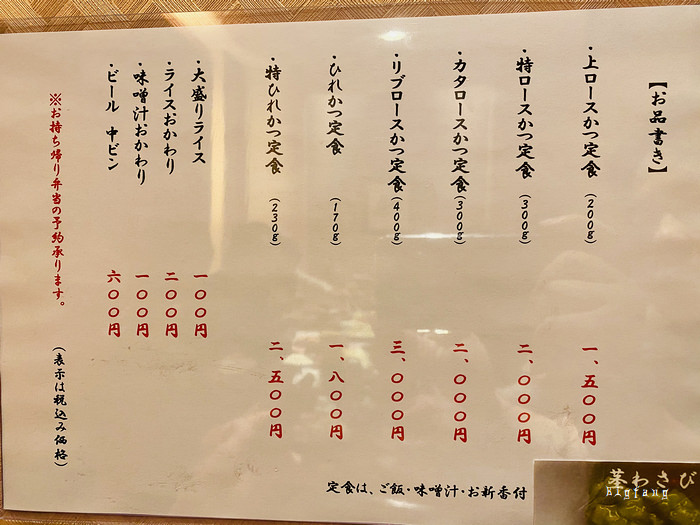 【お品書き】
・上ロースかつ定食（200g） 一、五〇〇円
・特ロースかつ定食（300g） 二、〇〇〇円
・カタロースかつ定食（300g） 二、〇〇〇円
・リブロースかつ定食（400g） 三、〇〇〇円
・ひれかつ定食（170g） 一、八〇〇円
・特ひれかつ定食（230g） 二、五〇〇円
・大盛りライス 一〇〇円
・ライスおかわり 二〇〇円
・味噌汁おかわり 一〇〇円
・ビール 中ビン 六〇〇円
※お持ち帰り弁当の予約承ります。
（表示は税込み価格）
定食は、ご飯・味噌汁・お新香付
茎わさび